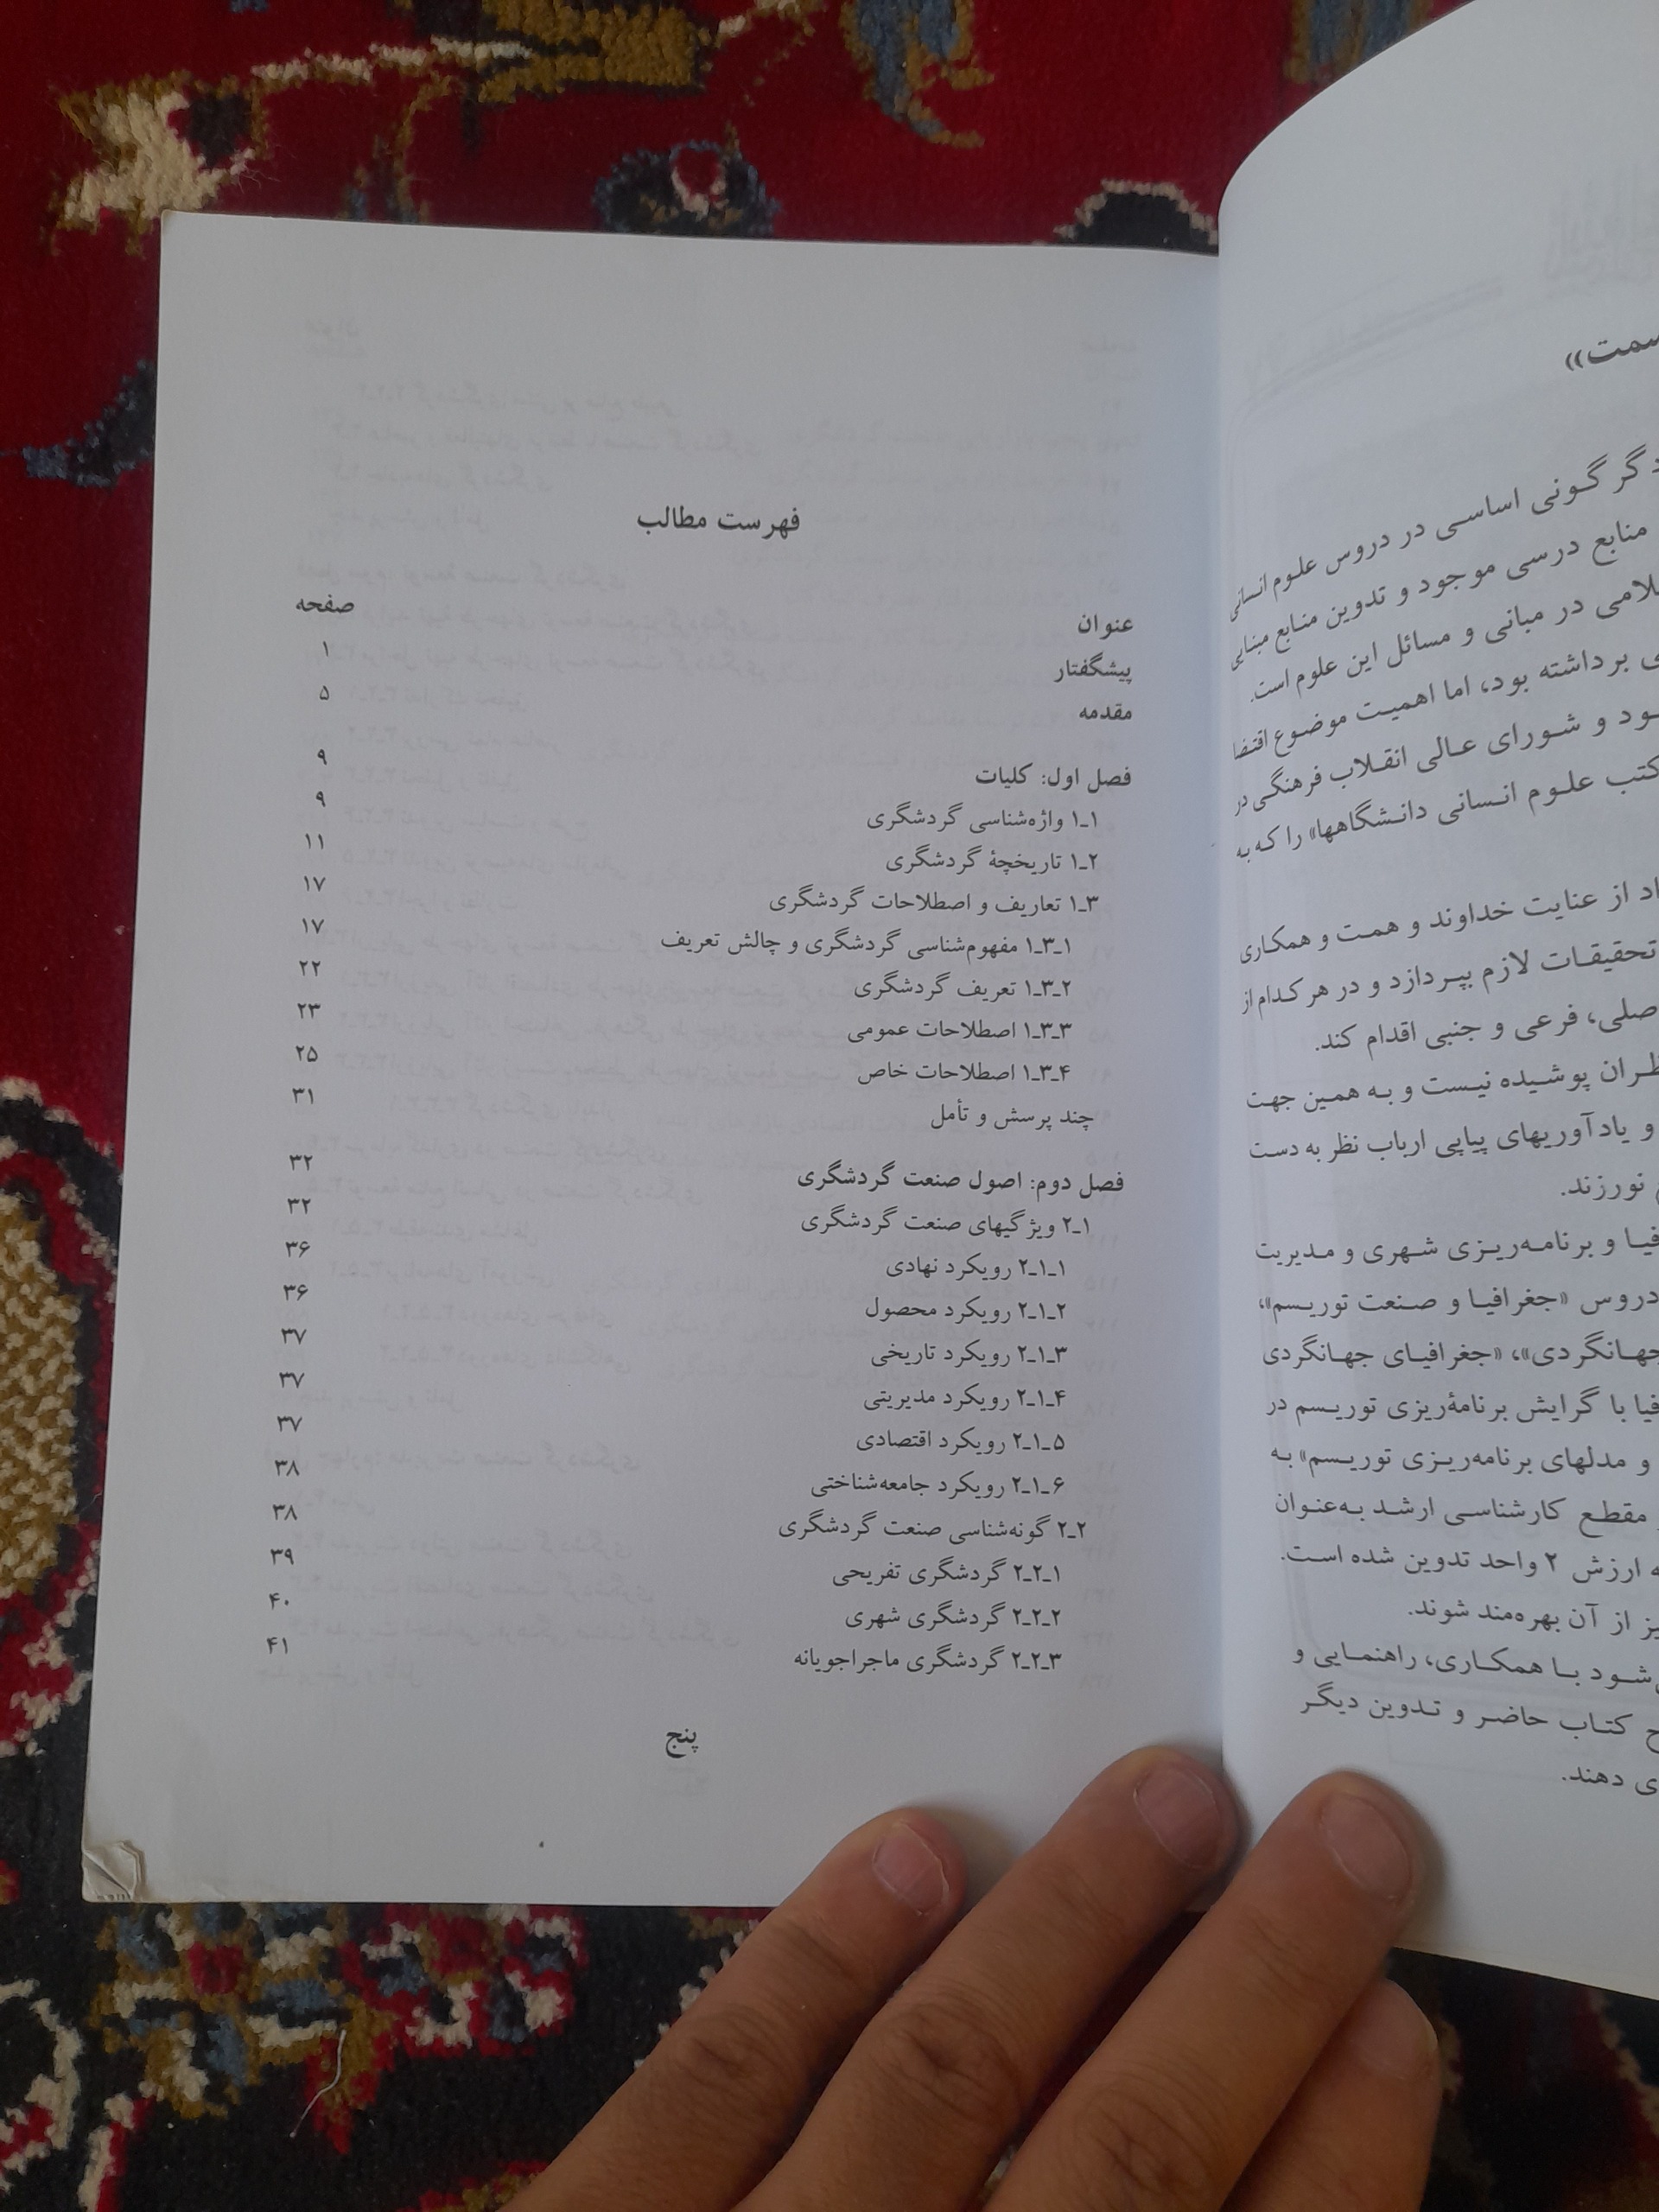 سمت»
دگرگونی اساسی در دروس علوم انسانی
منابع درسی موجود و تدوین منابع مبنایی
در مبانی و مسائل این علوم است.
برداشته بود، اما اهمیت موضوع اقتضا
و شورای عالی انقلاب فرهنگی در
کتب علوم انسانی دانشگاهها» را که به
از عنایت خداوند و همت و همکاری
تحقیقات لازم بپردازد و در هر کدام از
فرعی و جنبی اقدام کند.
پوشیده نیست و به همین جهت
و یادآوریهای پیاپی ارباب نظر به دست
نورزند.
و برنامه‌ریزی شهری و مدیریت
دروس «جغرافیا و صنعت توریسم»،
جهانگردی»، «جغرافیای جهانگردی
با گرایش برنامهٔ‌ریزی توریسم در
و مدلهای برنامه‌ریزی توریسم» به
مقطع کارشناسی ارشد به‌عنوان
ارزش ۲ واحد تدوین شده است.
از آن بهره‌مند شوند.
با همکاری، راهنمایی و
کتاب حاضر و تدوین دیگر
دهند.
فهرست مطالب
عنوان صفحه
پیشگفتار ۱
مقدمه ۵
فصل اول: کلیات ۹
۱ـ۱ واژه‌شناسی گردشگری ۹
۲ـ۱ تاریخچهٔ گردشگری ۱۱
۳ـ۱ تعاریف و اصطلاحات گردشگری ۱۷
۱ـ۳ـ۱ مفهوم‌شناسی گردشگری و چالش تعریف ۱۷
۲ـ۳ـ۱ تعریف گردشگری ۲۲
۳ـ۳ـ۱ اصطلاحات عمومی ۲۳
۴ـ۳ـ۱ اصطلاحات خاص ۲۵
چند پرسش و تأمل ۳۱
فصل دوم: اصول صنعت گردشگری ۳۲
۱ـ۲ ویژگیهای صنعت گردشگری ۳۲
۱ـ۱ـ۲ رویکرد نهادی ۳۶
۲ـ۱ـ۲ رویکرد محصول ۳۶
۳ـ۱ـ۲ رویکرد تاریخی ۳۷
۴ـ۱ـ۲ رویکرد مدیریتی ۳۷
۵ـ۱ـ۲ رویکرد اقتصادی ۳۷
۶ـ۱ـ۲ رویکرد جامعه‌شناختی ۳۸
۲ـ۲ گونه‌شناسی صنعت گردشگری ۳۸
۱ـ۲ـ۲ گردشگری تفریحی ۳۹
۲ـ۲ـ۲ گردشگری شهری ۴۰
۳ـ۲ـ۲ گردشگری ماجراجویانه ۴۱
پنج